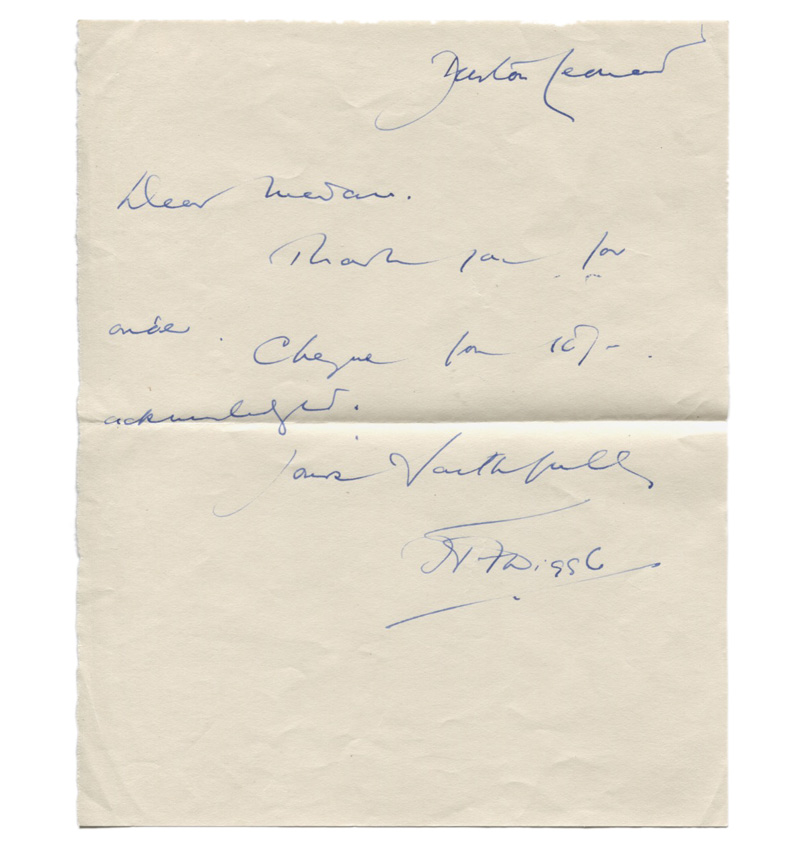 Dear Madam.
Thank you for
order. Cheque for 10/-.
acknowledged.
Yours Faithfully